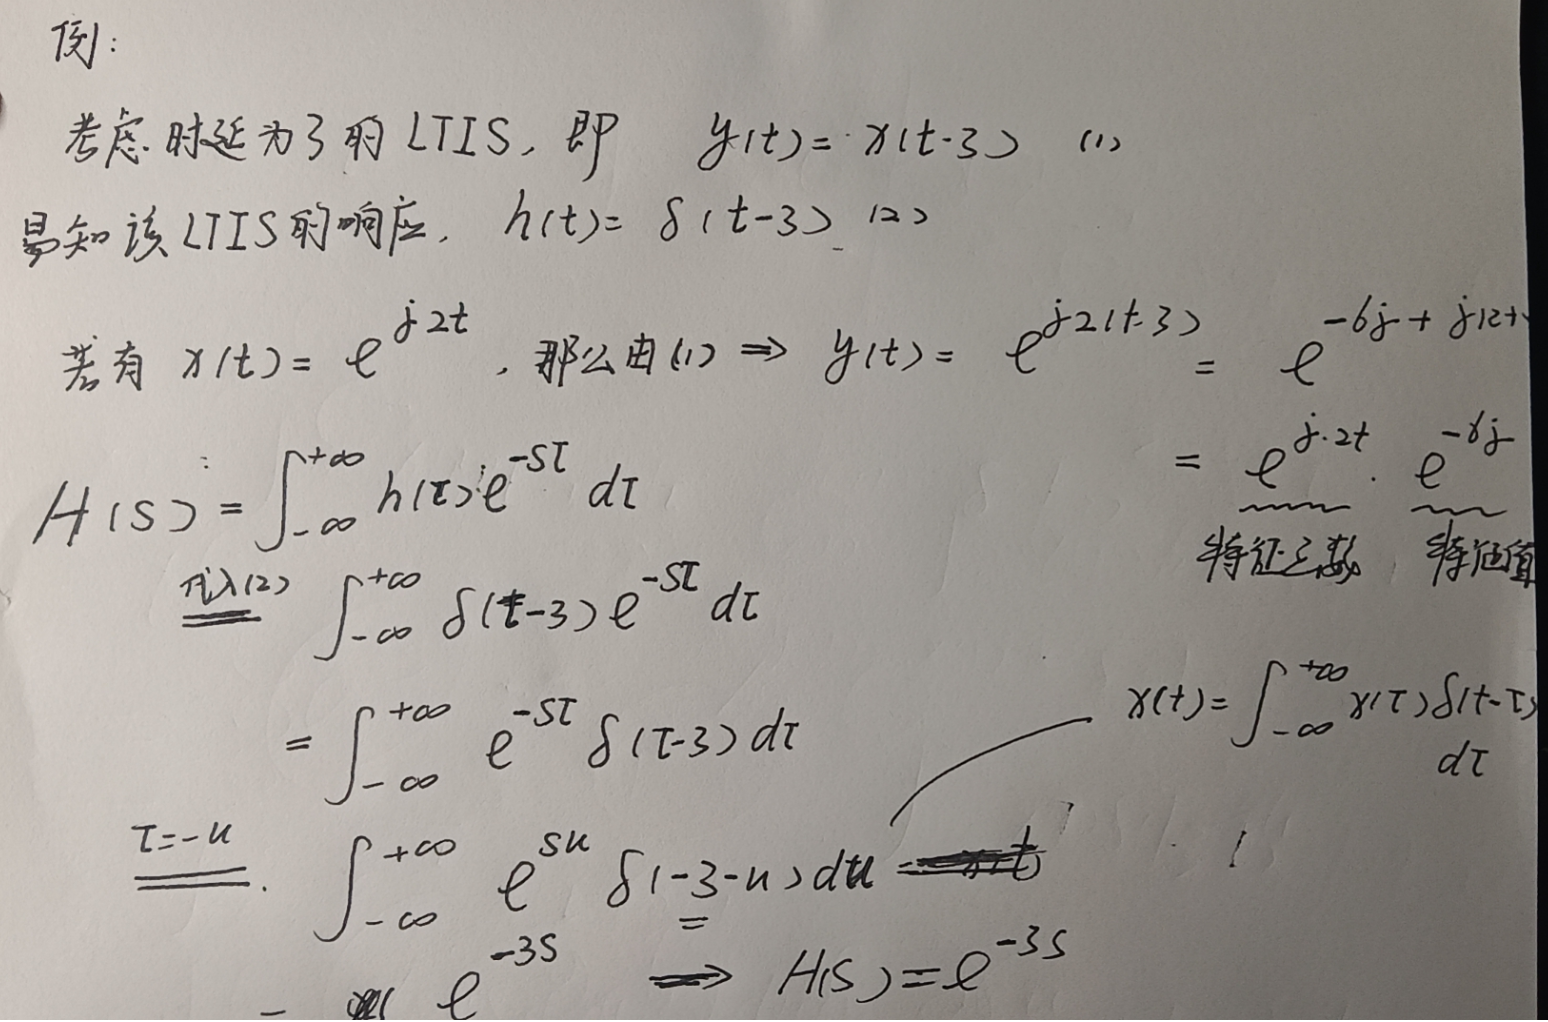 例:
考虑时延为3的LTIS, 即 y(t)=x(t-3) (1)
易知该LTIS的响应, h(t)=δ(t-3) (2)
若有 x(t)=e^{j2t}, 那么由(1) ⇒ y(t)=e^{j2(t-3)} = e^{-6j+j(2t)}
= e^{j·2t} · e^{-6j}
特征函数 特征值
H(s)=∫_{-∞}^{+∞} h(τ)e^{-sτ} dτ
代入(2) ∫_{-∞}^{+∞} δ(τ-3)e^{-sτ} dτ
=∫_{-∞}^{+∞} e^{-sτ} δ(τ-3) dτ
x(t)=∫_{-∞}^{+∞} x(τ)δ(t-τ)
dτ
τ=-u ∫_{-∞}^{+∞} e^{su} δ(-3-u) du
= e^{-3s} ⇒ H(s)=e^{-3s}